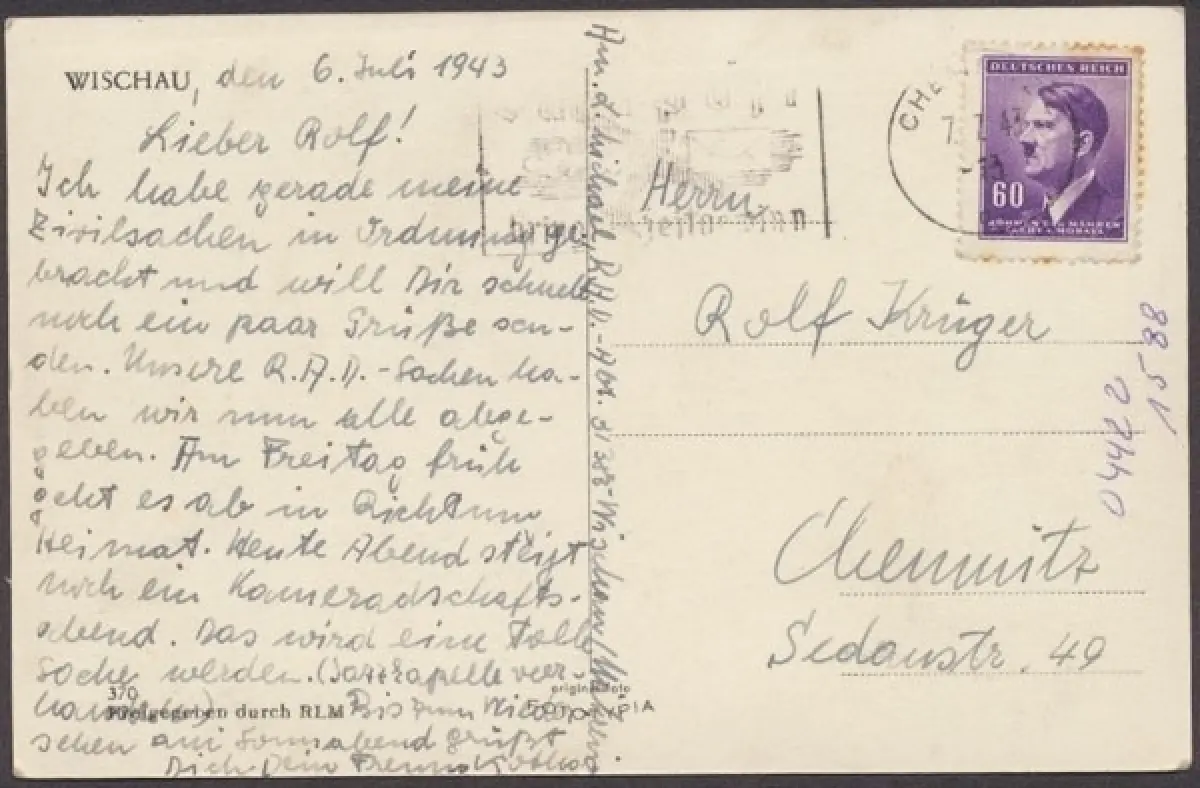 WISCHAU, den 6. Juli 1943
Lieber Rolf!
Ich habe gerade meine
Zivilsachen in Ordnung ge-
bracht und will Dir schnell
noch ein paar Grüße sen-
den. Unsere R.A.D.-Sachen ha-
ben wir nun alle abge-
geben. Am Freitag früh
geht es ab in Richtung
Heimat. Heute Abend steigt
noch ein Kameradschafts-
abend. Das wird eine tolle
Sache werden. (Jazzkapelle vor-
handen) Bis zum Wieder-
sehen am Sonnabend grüßt
Dich Dein Freund
370
Freigegeben durch RLM
originalfoto
R.A.D.-Abt. Wischau/Mähren
CHE
7.7.43
DEUTSCHES REICH
60
BÖHMEN U. MÄHREN
ČECHY A MORAVA
Herrn
Rolf Krüger
Chemnitz
Sedanstr. 49
0442 2
1588